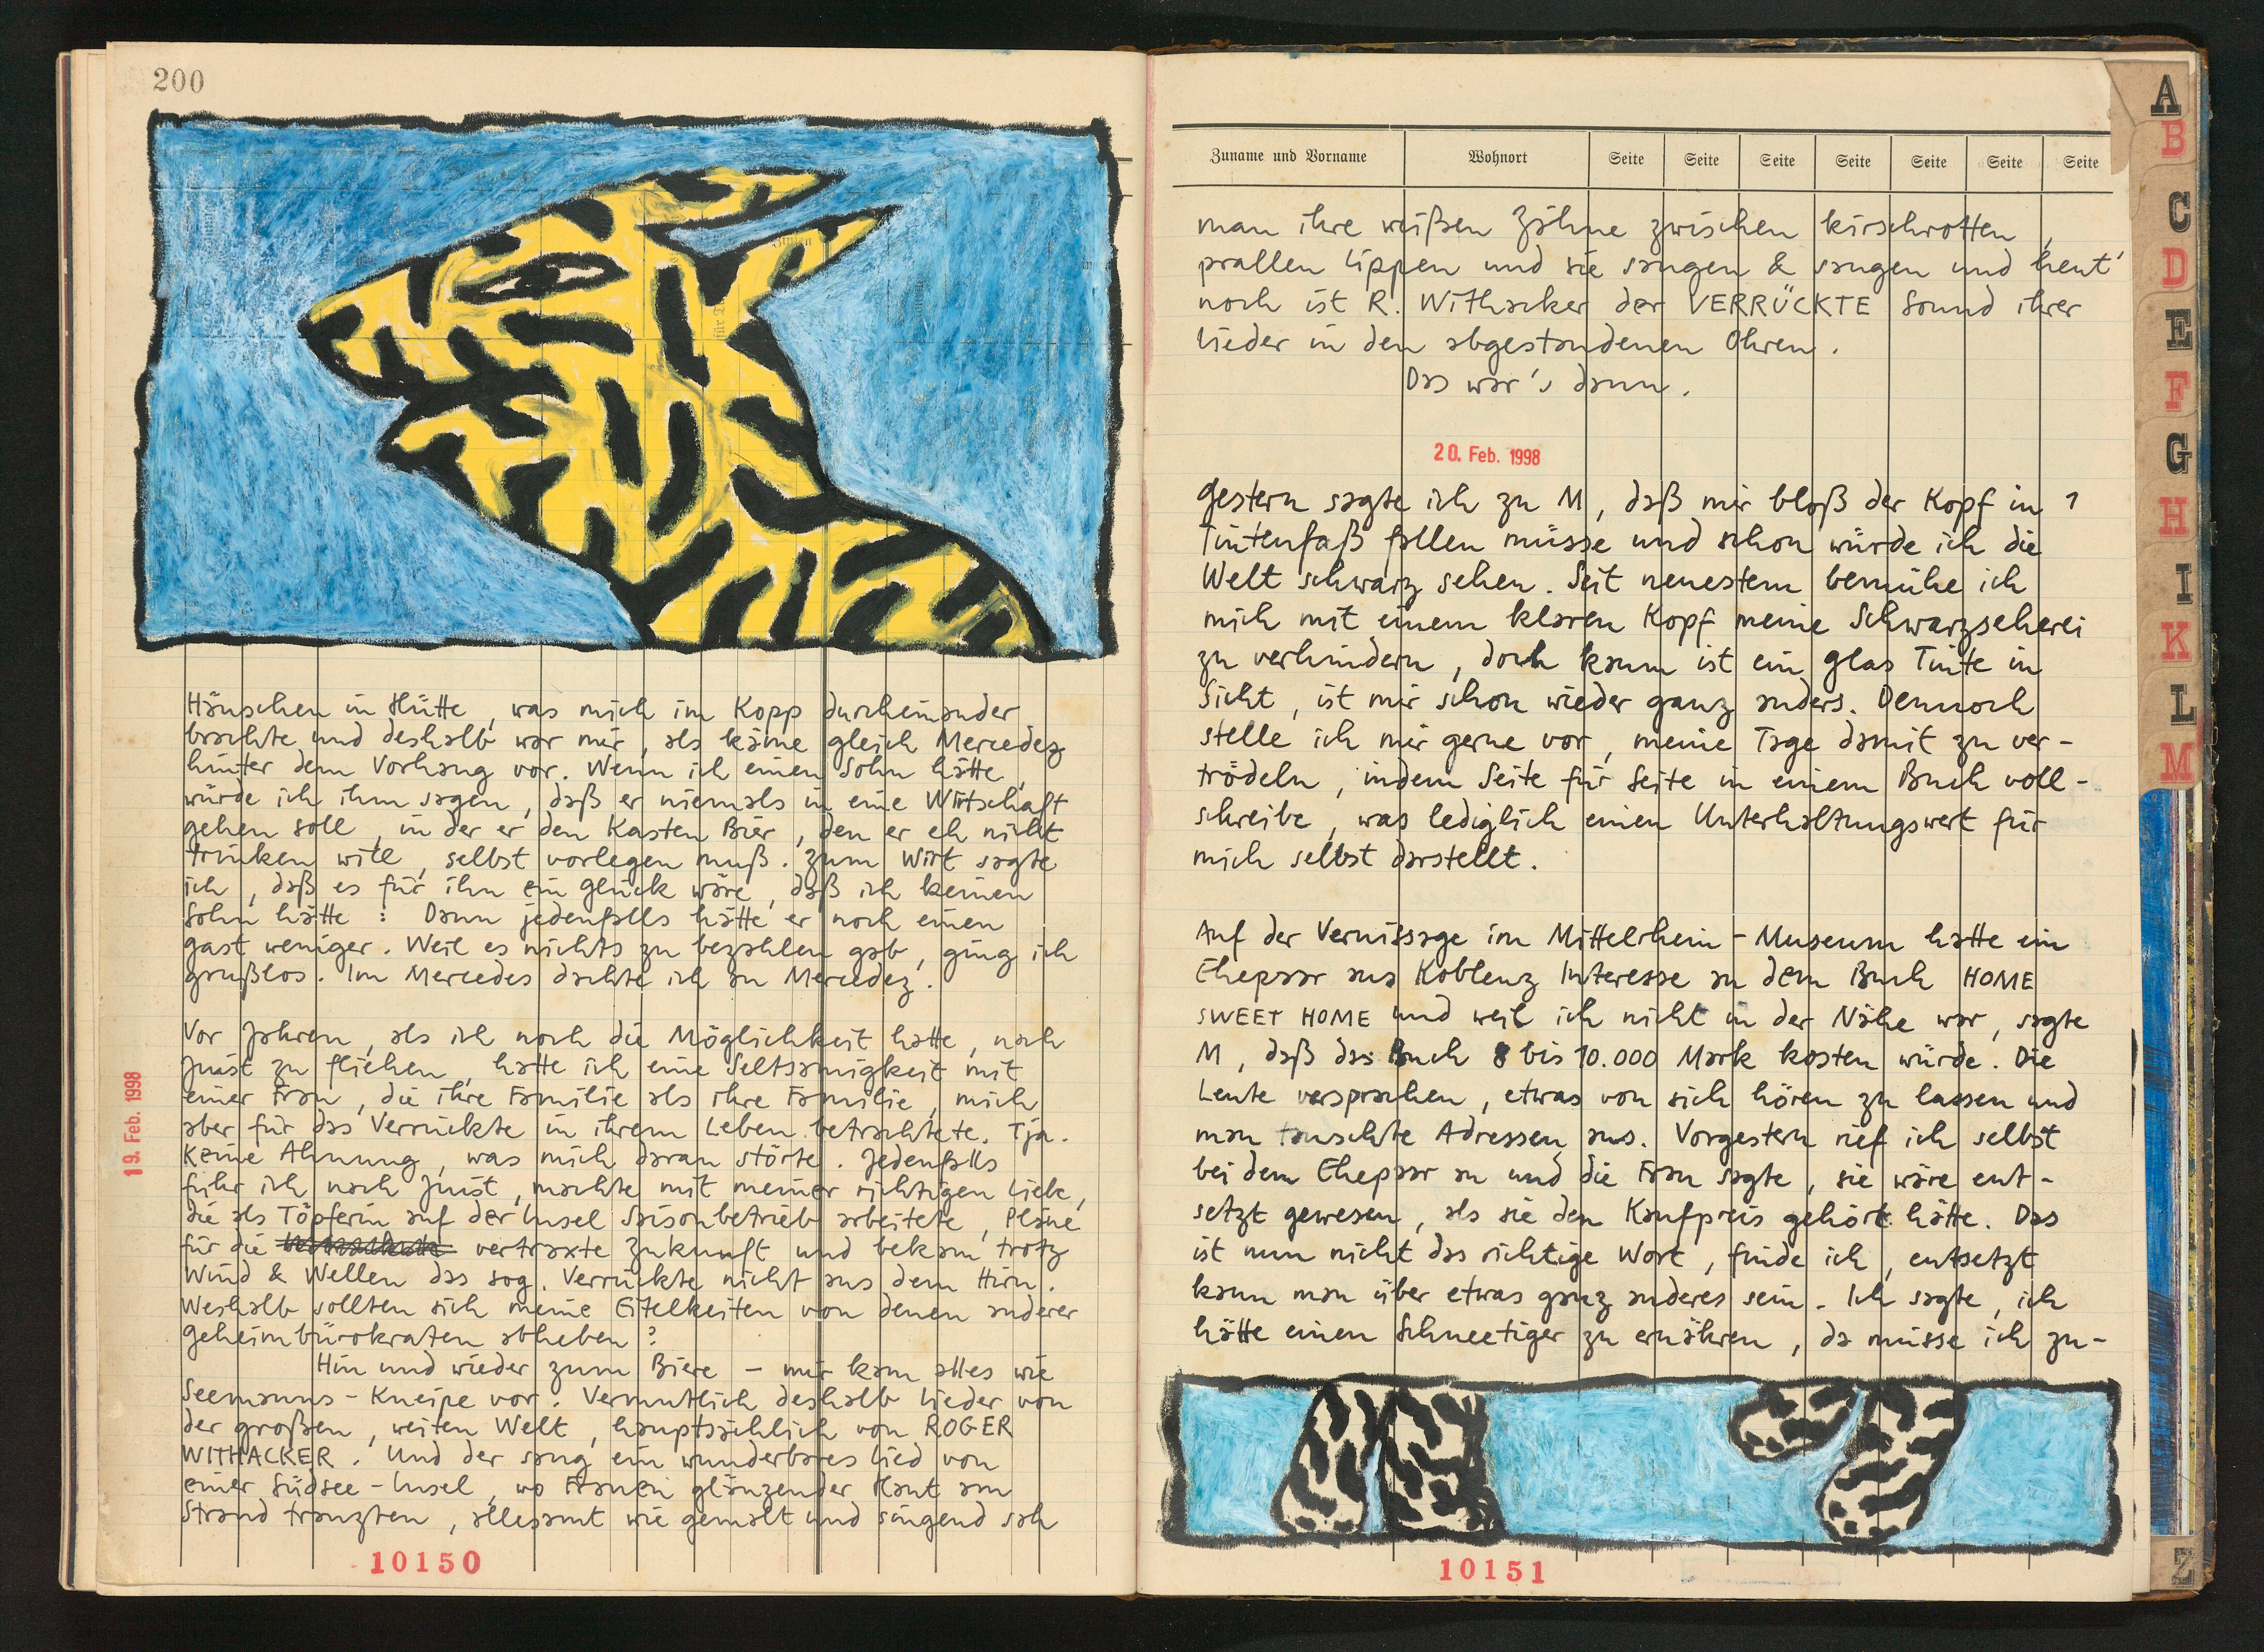 200
Häuschen in Hütte, was mich im Kopp durcheinander
brachte und deshalb war mir, als käme gleich Mercedez
hinter dem Vorhang vor. Wenn ich einen Sohn hätte,
würde ich ihm sagen, daß er niemals in eine Wirtschaft
gehen soll, in der er den Kasten Bier, den er eh nicht
trinken will, selbst vorlegen muß. Zum Wirt sagte
ich, daß es für ihn ein Glück wäre, daß ich keinen
Sohn hätte: Dann jedenfalls hätte er noch einen
Gast weniger. Weil es nichts zu bezahlen gab, ging ich
grußlos. Im Mercedes dachte ich an Mercedez.
19. Feb. 1998
Vor Jahren, als ich noch die Möglichkeit hatte, nach
Juist zu fliehen, hatte ich eine Seltsamigkeit mit
einer Frau, die ihre Familie als ihre Familie, mich
aber für das Verrückte in ihrem Leben betrachtete. Tja.
Keine Ahnung, was mich daran störte. Jedenfalls
fuhr ich nach Juist, machte mit meiner richtigen Liebe,
die als Töpferin auf der Insel Saisonbetrieb arbeitete, Pläne
für die vertraxte Zukunft und bekam trotz
Wind & Wellen das sog. Verrückte nicht aus dem Hirn.
Weshalb sollten sich meine Eitelkeiten von denen anderer
Geheimbürokraten abheben?
Hin und wieder zum Biere – mir kam alles wie
Seemanns-Kneipe vor. Vermutlich deshalb Lieder von
der großen, weiten Welt, hauptsächlich von ROGER
WITHACKER. Und der sang ein wunderbares Lied von
einer Südsee-Insel, wo Frauen glänzender Haut am
Strand tranzten, allesamt wie gemalt und singend sah
10150
Zuname und Vorname Wohnort Seite Seite Seite Seite Seite Seite Seite
man ihre weißen Zähne zwischen kirschrotten,
prallen Lippen und sie sangen & sangen und heut'
noch ist R. Withacker der VERRÜCKTE Sound ihrer
Lieder in den abgestandenen Ohren.
Das war's dann.
20. Feb. 1998
Gestern sagte ich zu M, daß mir bloß der Kopf in 1
Tintenfaß fallen müsse und schon würde ich die
Welt schwarz sehen. Seit neuestem bemühe ich
mich mit einem klaren Kopf meine Schwarzseherei
zu verhindern, doch kaum ist ein Glas Tinte in
Sicht, ist mir schon wieder ganz anders. Dennoch
stelle ich mir gerne vor, meine Tage damit zu ver-
trödeln, indem Seite für Seite in einem Buch voll-
schreibe, was lediglich einen Unterhaltungswert für
mich selbst darstellt.
Auf der Vernissage im Mittelrhein-Museum hatte ein
Ehepaar aus Koblenz Interesse an dem Buch HOME
SWEET HOME und weil ich nicht in der Nähe war, sagte
M, daß das Buch 8 bis 10.000 Mark kosten würde. Die
Leute versprachen, etwas von sich hören zu lassen und
man tauschte Adressen aus. Vorgestern rief ich selbst
bei dem Ehepaar an und die Frau sagte, sie wäre ent-
setzt gewesen, als sie den Kaufpreis gehört hätte. Das
ist nun nicht das richtige Wort, finde ich, entsetzt
kann man über etwas ganz anderes sein. Ich sagte, ich
hätte einen Schneetiger zu ernähren, da müsse ich zu-
10151
A
B
C
D
E
F
G
H
I
K
L
M
Z